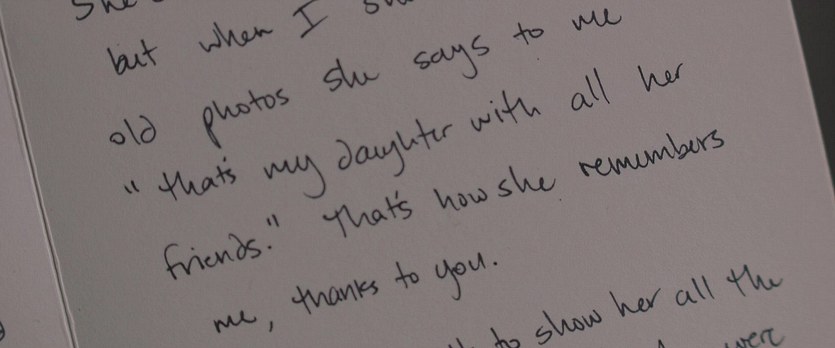 She
but when I
old photos she says to me
"that's my daughter with all her
friends." That's how she remembers
me, thanks to you.
to show her all the
were